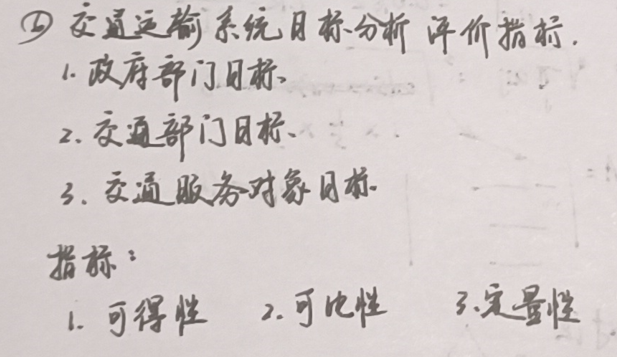 ⑤ 交通运输系统目标分析 评价指标.
1. 政府部门目标、
2. 交通部门目标、
3. 交通服务对象目标
指标：
1. 可得性 2. 可比性 3. 定量性